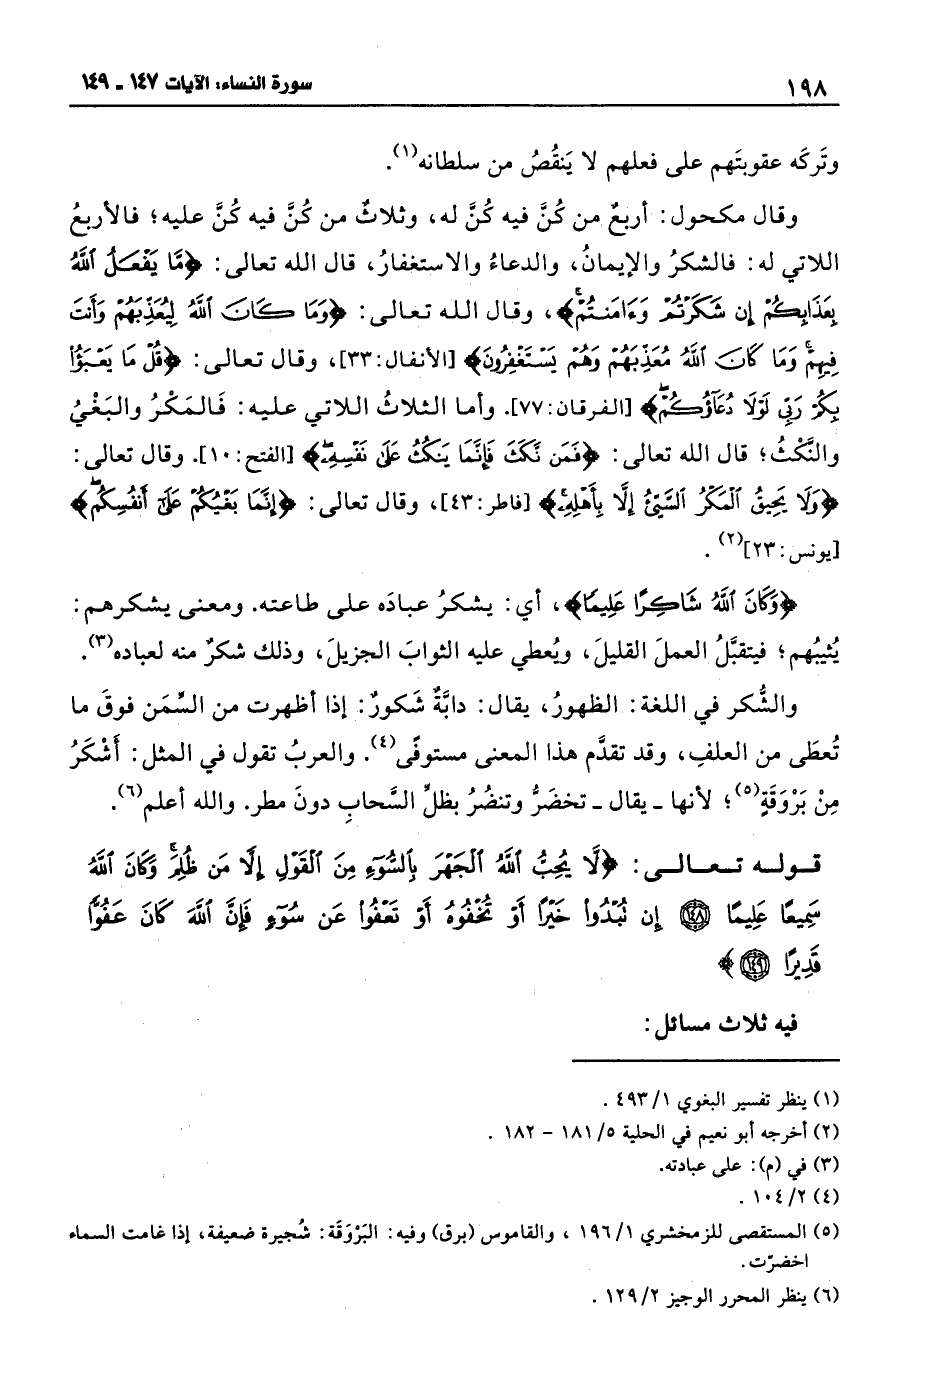 ١٩٨
سورة النساء: الآيات ١٤٧ ـ ١٤٩
وتَركَه عقوبتَهم على فعلهم لا يَنقُصُ من سلطانه(١).
وقال مكحول: أربعٌ من كُنَّ فيه كُنَّ له، وثلاثٌ من كُنَّ فيه كُنَّ عليه؛ فالأربعُ
اللاتي له: فالشكرُ والإيمانُ، والدعاءُ والاستغفارُ، قال الله تعالى: ﴿مَّا يَفْعَلُ ٱللَّهُ
بِعَذَابِكُمْ إِن شَكَرْتُمْ وَءَامَنتُمْ﴾، وقال الله تعالى: ﴿وَمَا كَانَ ٱللَّهُ لِيُعَذِّبَهُمْ وَأَنتَ
فِيهِمْ وَمَا كَانَ ٱللَّهُ مُعَذِّبَهُمْ وَهُمْ يَسْتَغْفِرُونَ﴾ [الأنفال:٣٣]، وقال تعالى: ﴿قُلْ مَا يَعْبَؤُا
بِكُمْ رَبِّي لَوْلَا دُعَآؤُكُمْ﴾ [الفرقان:٧٧]. وأما الثلاثُ اللاتي عليه: فَالمَكْرُ والبَغْيُ
والنَّكْثُ؛ قال الله تعالى: ﴿فَمَن نَّكَثَ فَإِنَّمَا يَنكُثُ عَلَىٰ نَفْسِهِۦ﴾ [الفتح:١٠]. وقال تعالى:
﴿وَلَا يَحِيقُ ٱلْمَكْرُ ٱلسَّيِّئُ إِلَّا بِأَهْلِهِۦ﴾ [فاطر:٤٣]، وقال تعالى: ﴿إِنَّمَا بَغْيُكُمْ عَلَىٰٓ أَنفُسِكُم﴾
[يونس:٢٣](٢).
﴿وَكَانَ ٱللَّهُ شَاكِرًا عَلِيمًا﴾، أي: يشكرُ عبادَه على طاعته. ومعنى يشكرهم:
يُثيبُهم؛ فيتقبَّلُ العملَ القليلَ، ويُعطي عليه الثوابَ الجزيلَ، وذلك شكرٌ منه لعباده(٣).
والشُّكر في اللغة: الظهورُ، يقال: دابَّةٌ شَكورٌ: إذا أظهرت من السِّمَن فوقَ ما
تُعطَى من العلفِ، وقد تقدَّم هذا المعنى مستوفًى(٤). والعربُ تقول في المثل: أَشْكَرُ
مِنْ بَرْوَقَةٍ(٥)؛ لأنها ـ يقال ـ تخضَرُّ وتنضُرُ بظلِّ السَّحابِ دونَ مطر. والله أعلم(٦).
قوله تعالى: ﴿لَّا يُحِبُّ ٱللَّهُ ٱلْجَهْرَ بِٱلسُّوٓءِ مِنَ ٱلْقَوْلِ إِلَّا مَن ظُلِمَ وَكَانَ ٱللَّهُ
سَمِيعًا عَلِيمًا ۝١٤٨ إِن تُبْدُوا۟ خَيْرًا أَوْ تُخْفُوهُ أَوْ تَعْفُوا۟ عَن سُوٓءٍ فَإِنَّ ٱللَّهَ كَانَ عَفُوًّا
قَدِيرًا ۝١٤٩﴾
فيه ثلاث مسائل:
(١) ينظر تفسير البغوي ٤٩٣/١ .
(٢) أخرجه أبو نعيم في الحلية ١٨١/٥ - ١٨٢ .
(٣) في (م): على عبادته.
(٤) ١٠٤/٢ .
(٥) المستقصى للزمخشري ١٩٦/١ ، والقاموس (برق) وفيه: البَرْوَقَة: شُجيرة ضعيفة، إذا غامت السماء
اخضرّت.
(٦) ينظر المحرر الوجيز ١٢٩/٢ .